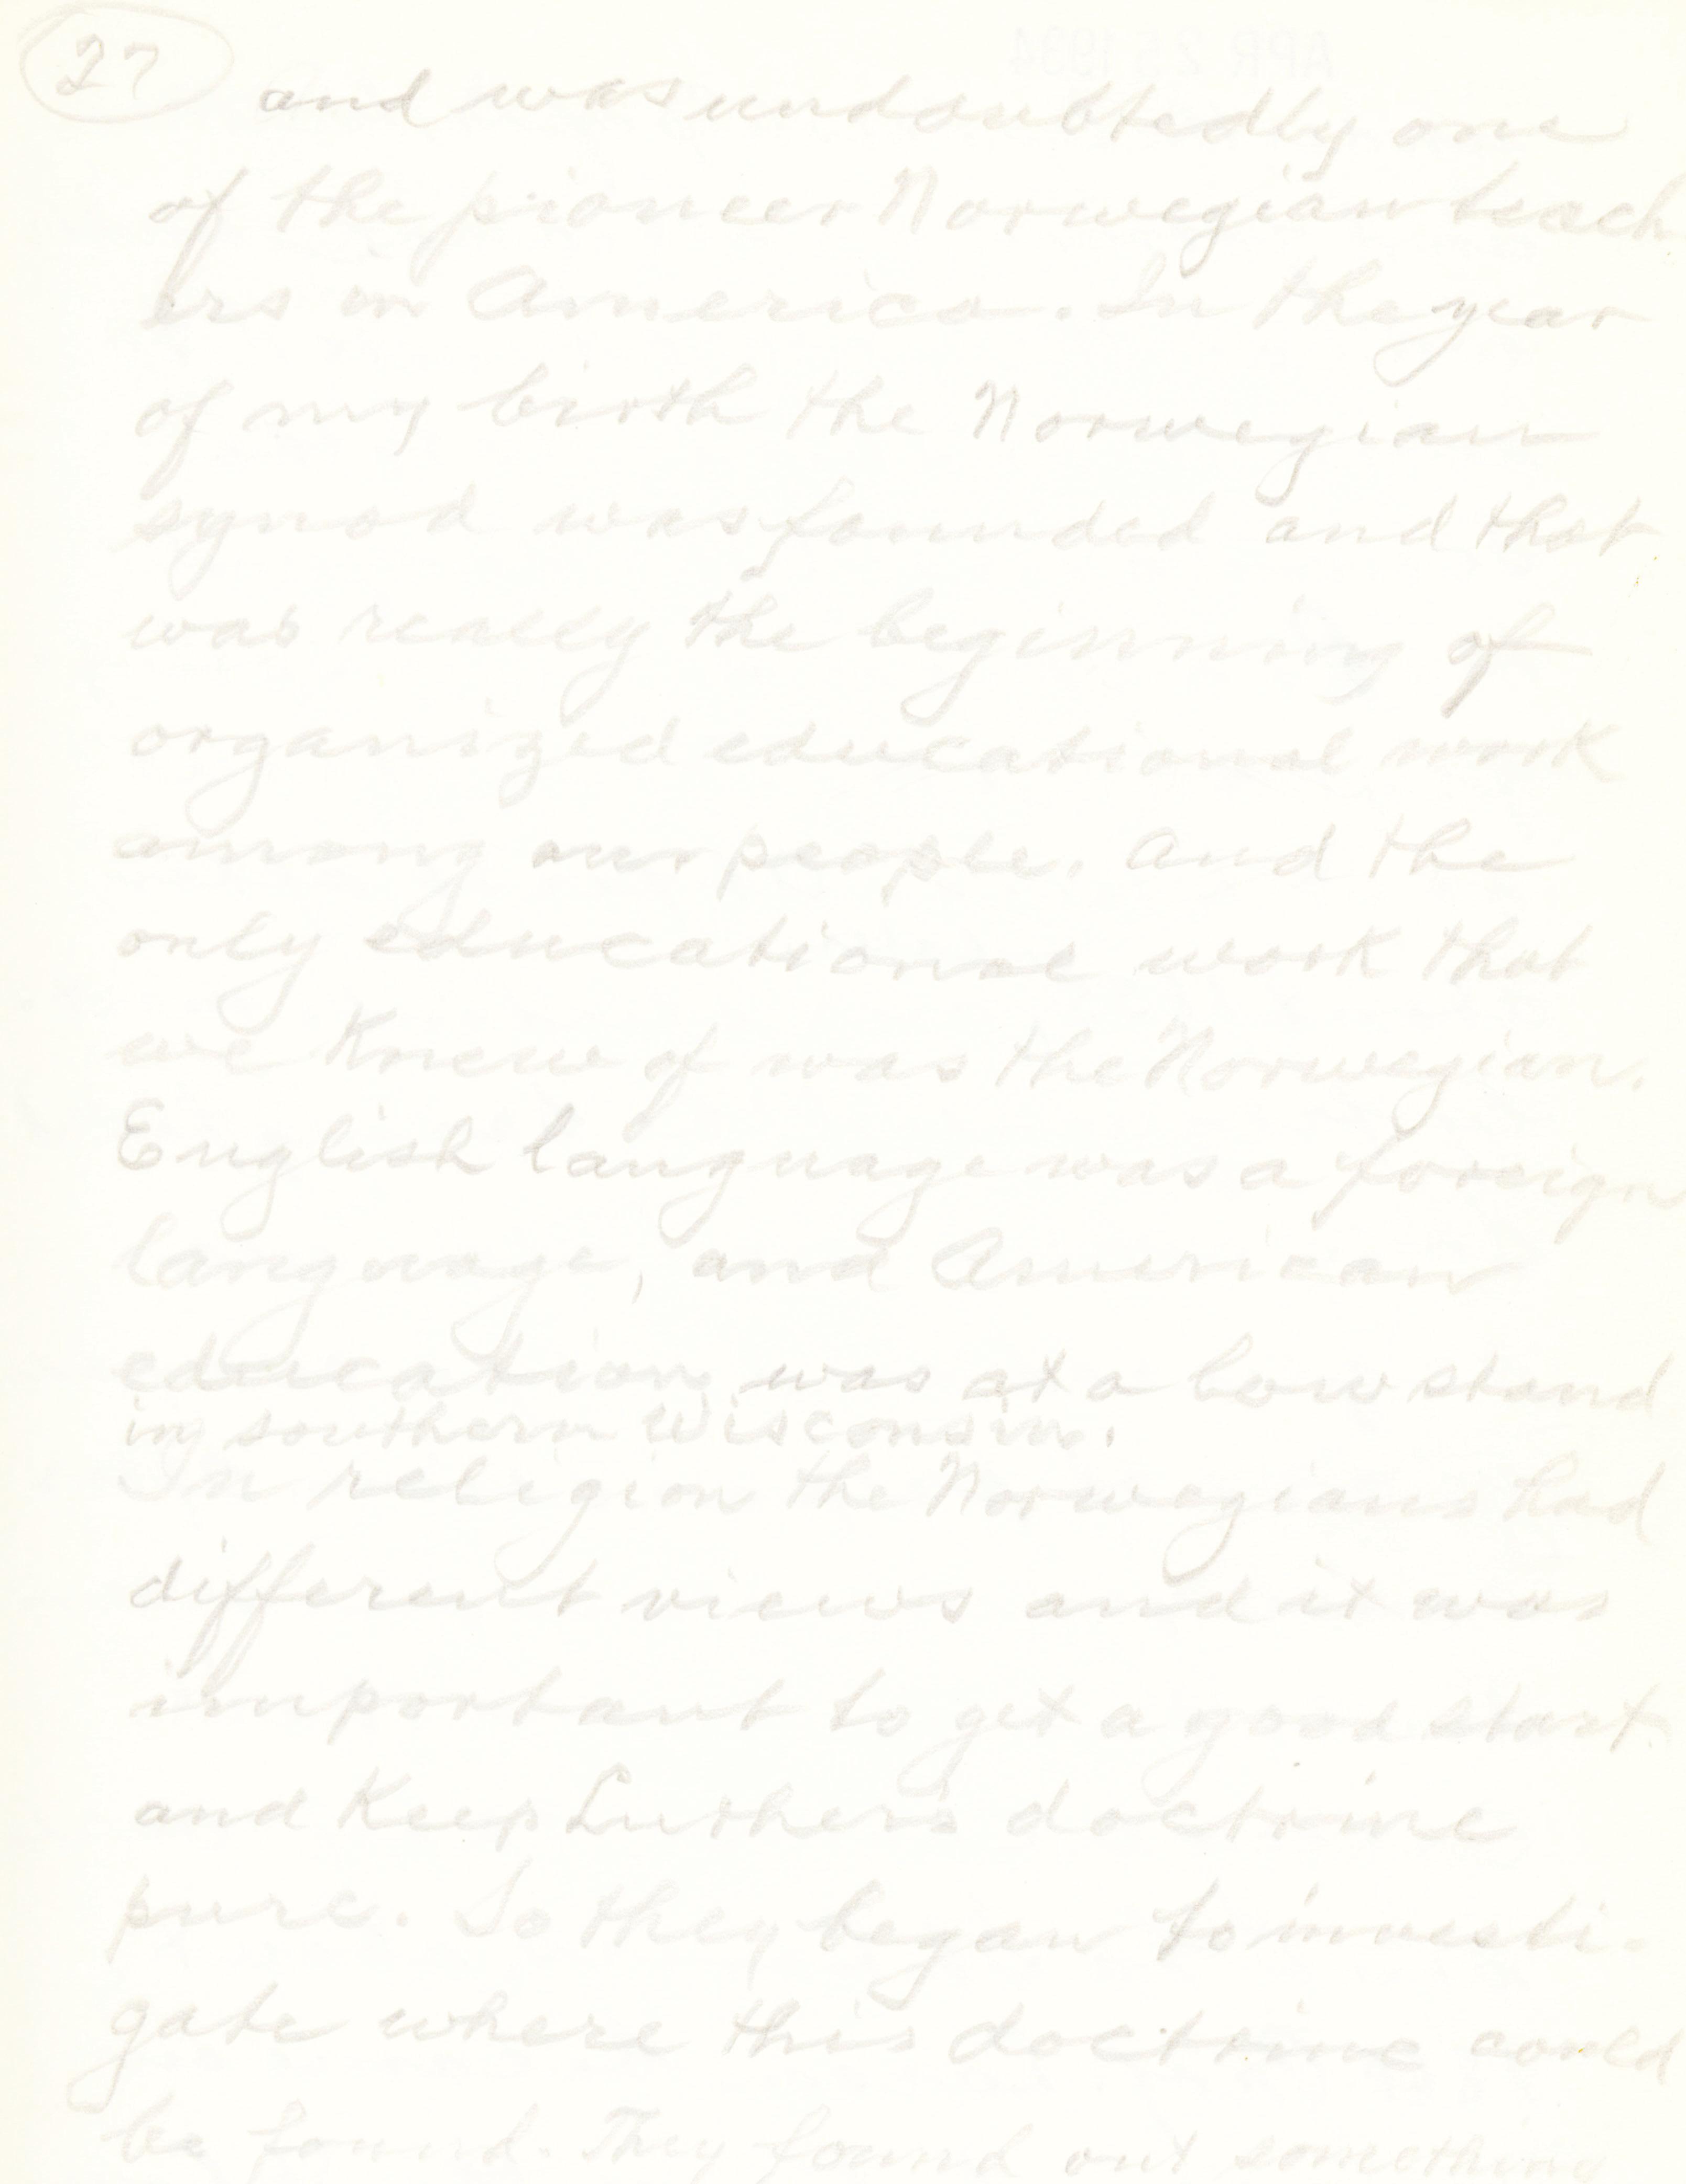 27
APR 25 1934
and was undoubtedly one
of the pioneer Norwegian teach
ers in America. In the year
of my birth the Norwegian
synod was founded and that
was really the beginning of
organized educational work
among our people. And the
only educational work that
we knew of was the Norwegian.
English language was a foreign
language, and American
education was at a low stand
in southern Wisconsin.
In religion the Norwegians had
different views and it was
important to get a good start
and keep Luther's doctrine
pure. So they began to investi-
gate where this doctrine could
be found. They found out something